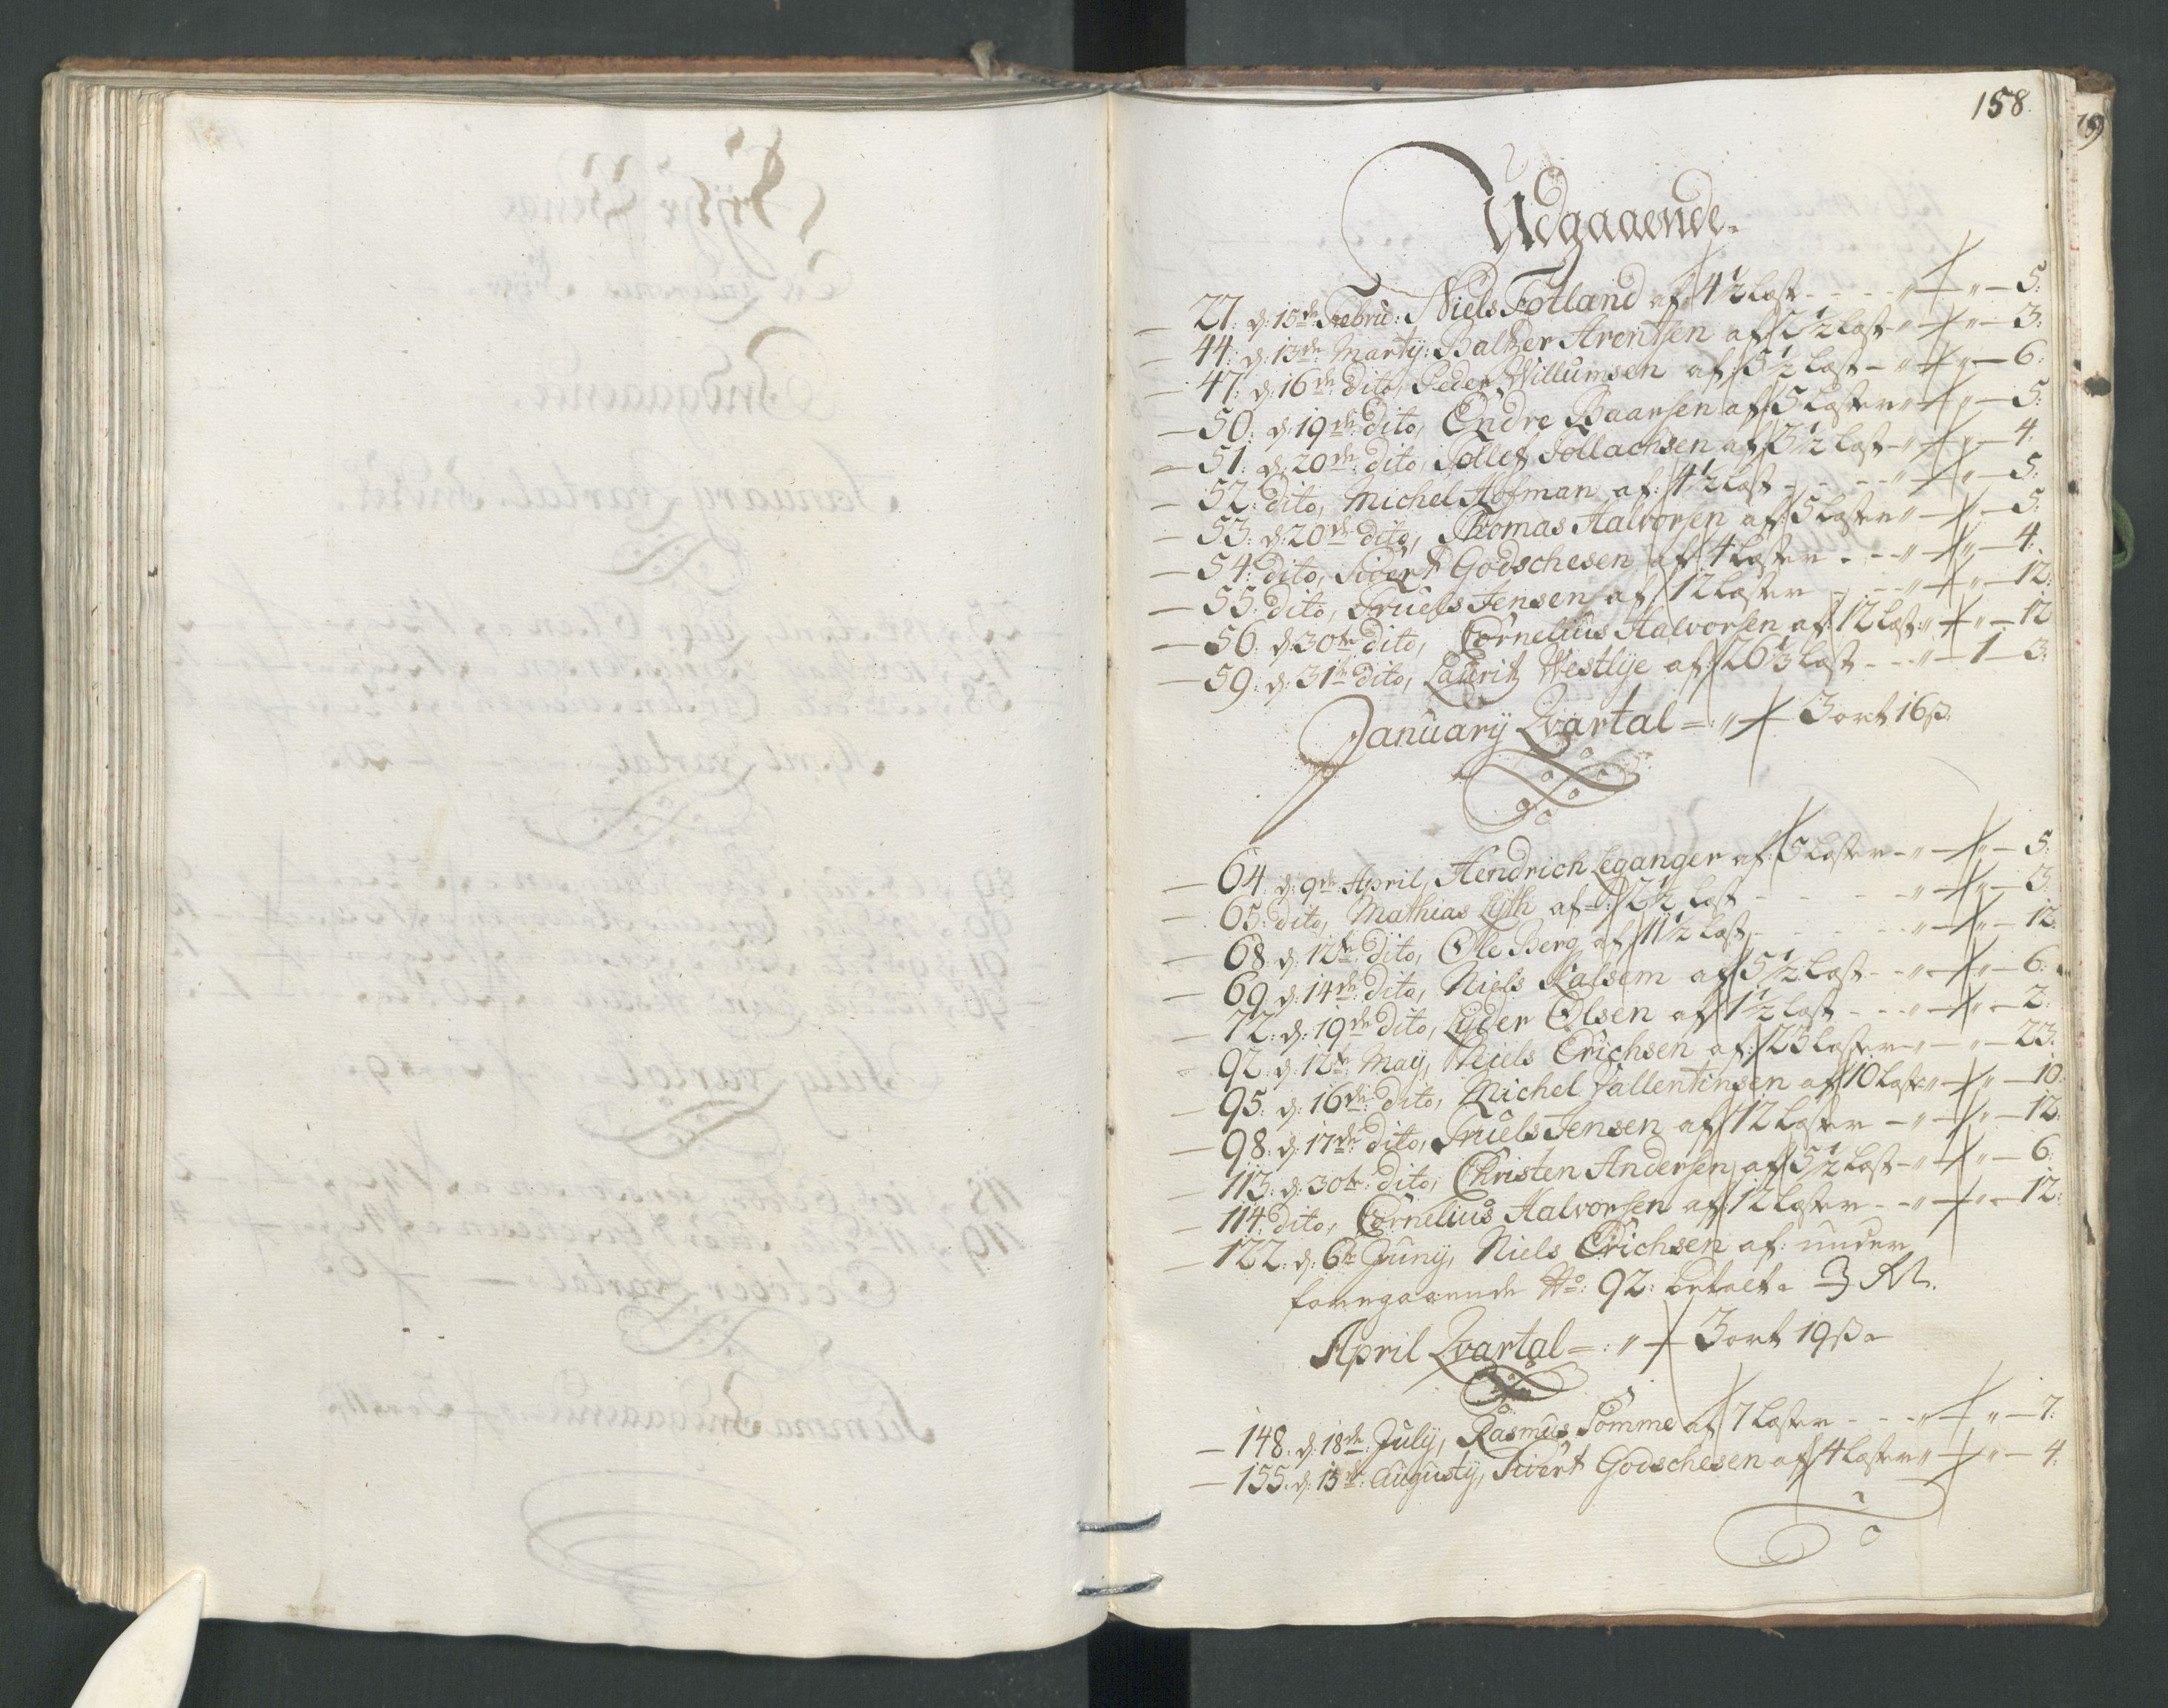 158.
Udgaaende.
— 27: d: 15de Febru: Niels Fotland af: 4½ læst - - - " — " — 5:
— 44: d: 13de Martij: Baltzer Arentsen af: 2½ læst - " — " — 3:
— 47: d: 16de dito, Peder Willumsen af: 5½ læst - " — " — 6:
— 50: d: 19de dito, Endre Baarsen af: 5 læster " — " — 5:
— 51: d: 20de dito, Tollef Tollachsen af: 3½ læst - " — " — 4:
— 52: dito, Michel Hofman af: 4½ læst - - - " — " — 5:
— 53: d: 20de dito, Thomas Halvorsen af: 5 læster " — " — 5:
— 54: dito, Sivert Godschesen af: 4 læster - - " — " — 4:
— 55: dito, Truels Jensen af: 12 læster - - - " — " — 12:
— 56: d: 30te dito, Cornelius Halvorsen af: 12 læst: " — " — 12
— 59: d: 31te dito, Laurit Westlye af: 26⅓ læst - - - " — 1 — 3:
Januarij Qvartal = : " — 3 ort 16 ß.
— 64: d: 9de April, Hendrich Leganger af: 5 læster - " — " — 5:
— 65: dito, Mathias Lyth af: 2½ læst - - - - " — " — 3:
— 68: d: 12te dito, Ole Berg af: 11½ læst - - - - " — " — 12:
— 69: d: 14de dito, Niels Kalsem af: 5½ læst - - " — " — 6:
— 72: d: 19de dito, Lyder Olsen af: 1½ læst - - - " — " — 2:
— 92: d: 12te May, Niels Erichsen af: 23 læster " — " — 23:
— 95: d: 16de dito, Michel Fallentinsen af: 10 læster " — " — 10:
— 98: d: 17de dito, Truels Jensen af: 12 læster - " — " — 12:
— 113: d: 30te dito, Christen Andersen af: 5½ læst - " — " — 6:
— 114: dito, Cornelius Halvorsen af: 12 læster - - " — " — 12:
— 122: d: 6te Junij, Niels Erichsen af: under
foregaaende No: 92: betalt.
April Qvartal = : " — 3 ort 19 ß.
— 148: d: 18de July, Rasmus Somme af: 7 læster - - - " — " — 7:
— 155: d: 15de Augustij, Sivert Godschesen af: 4 læster " — " — 4: